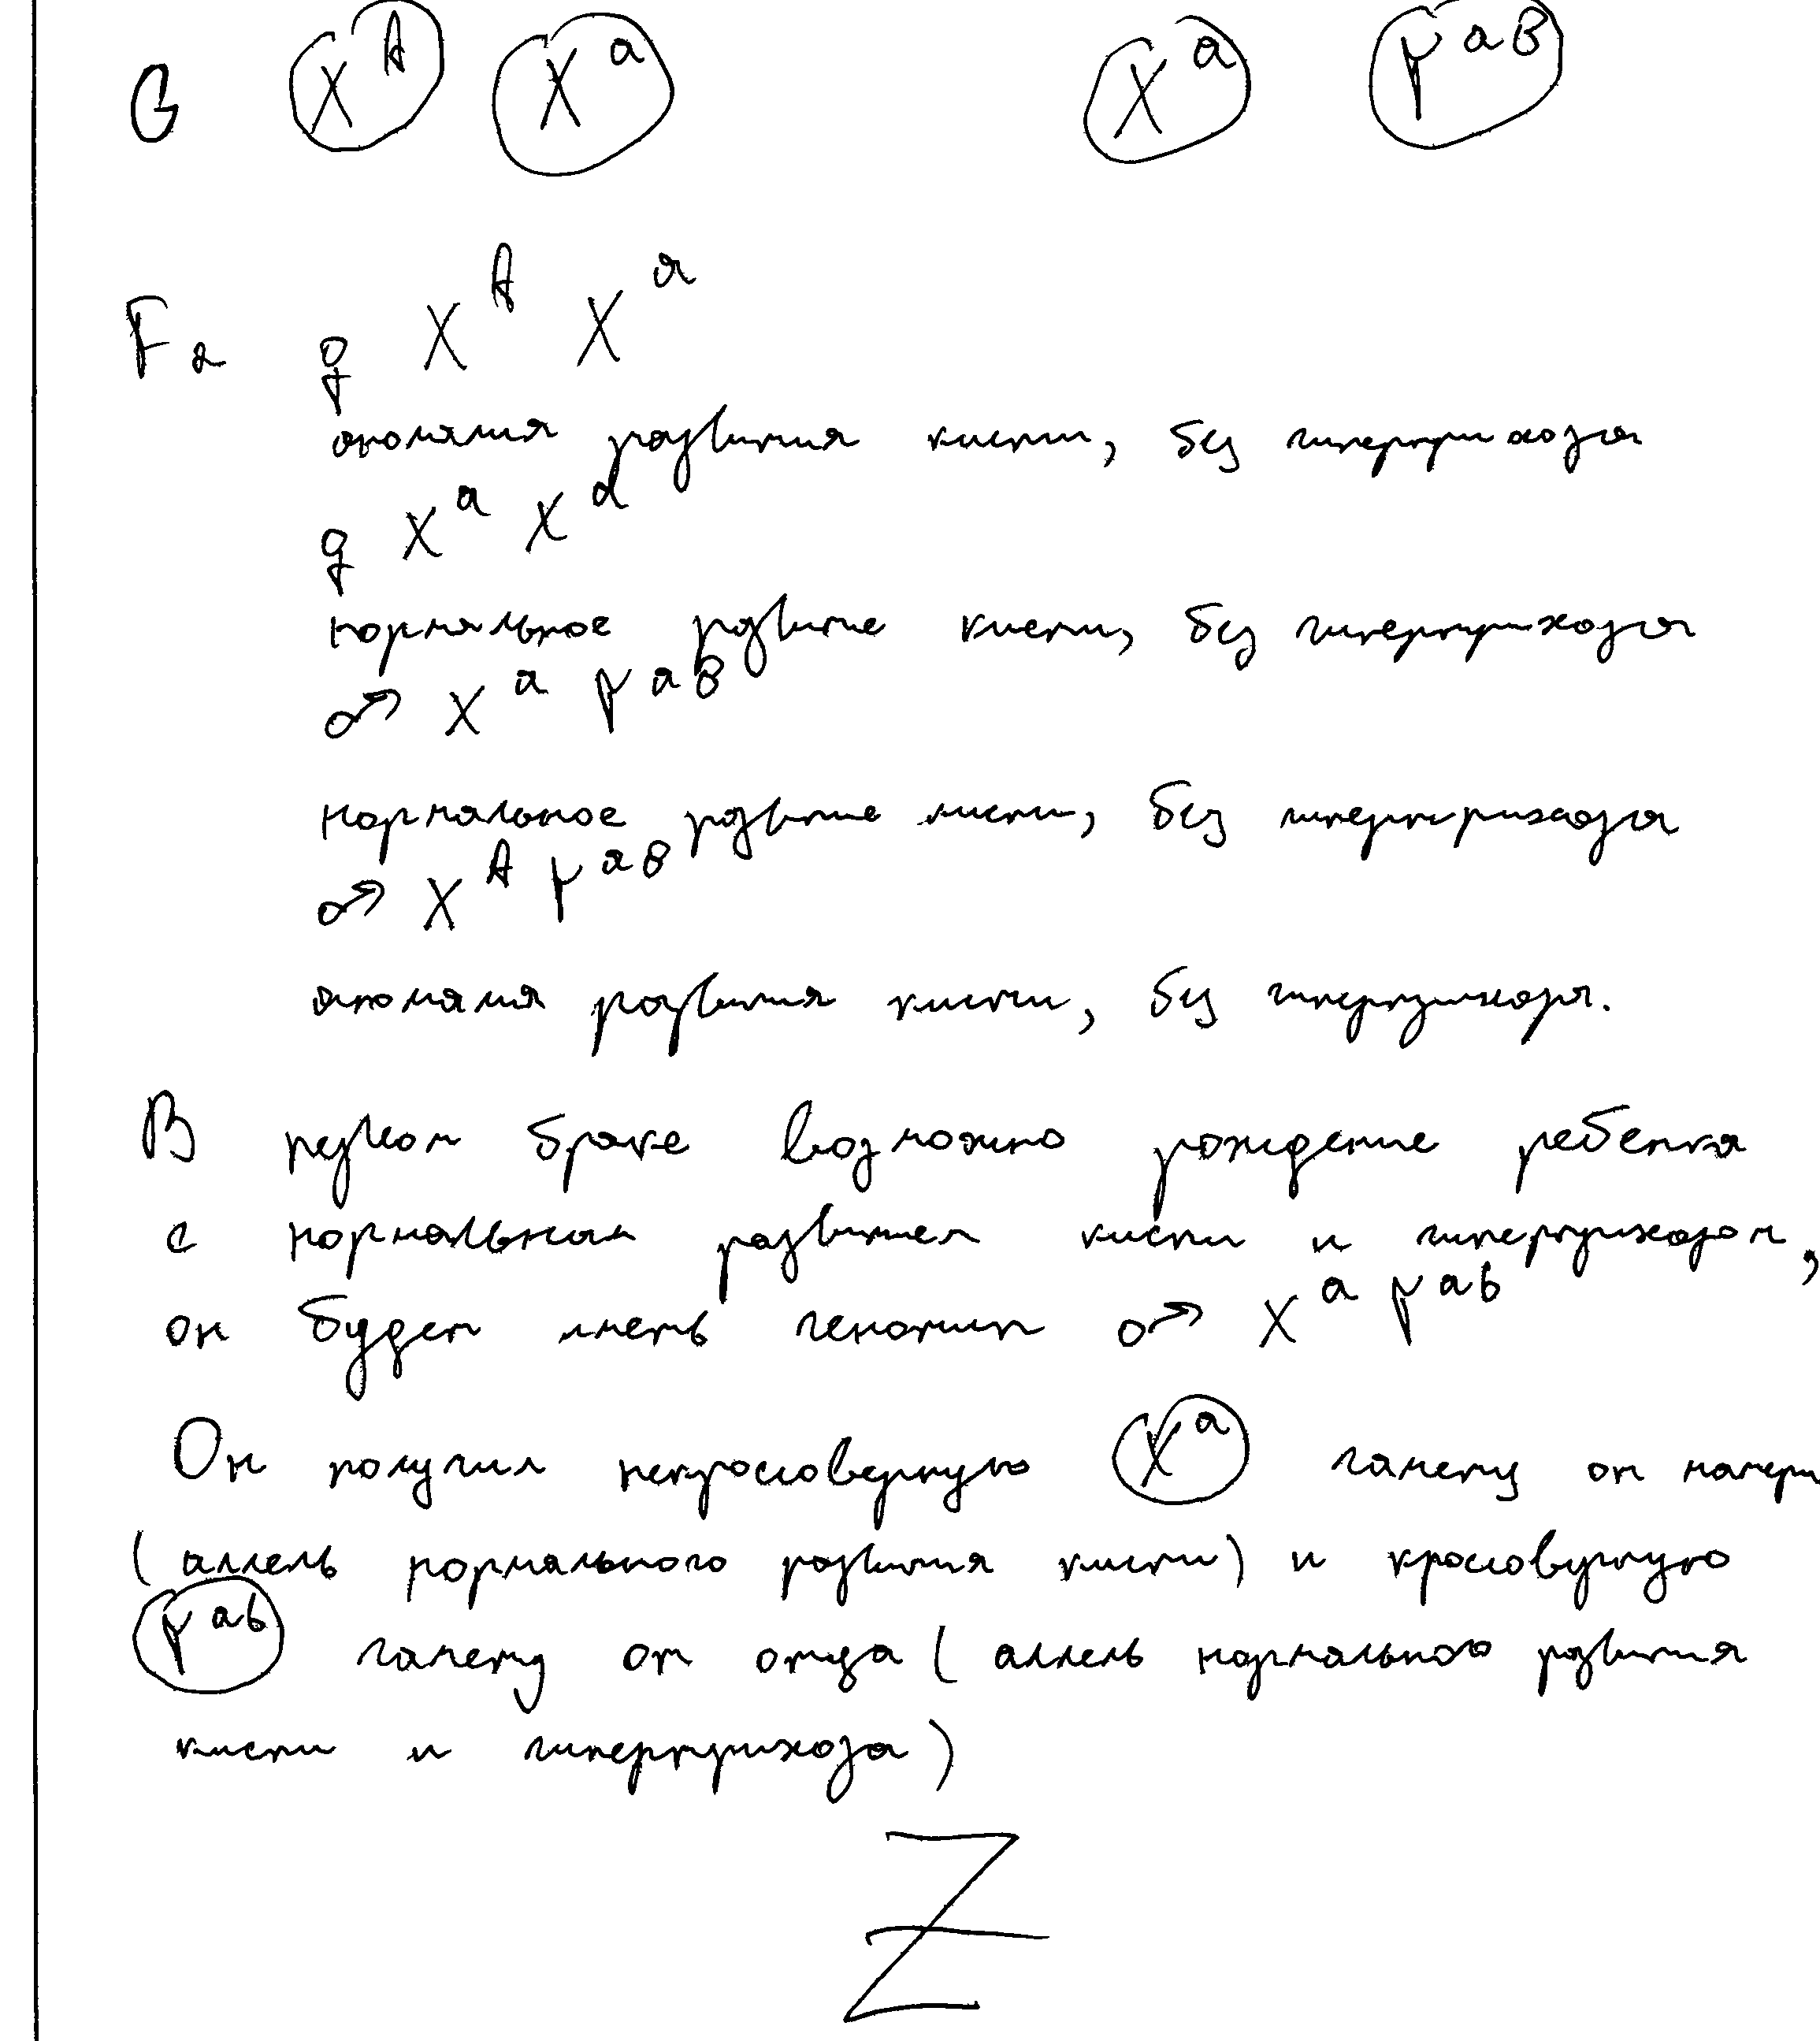 G X^A X^a X^a Y^aB
F2 ♀ X^A X^a
аномалия развития кисти, без гипертрихоза
♀ X^a X^a
нормальное развитие кисти, без гипертрихоза
♂ X^a Y^aB
нормальное развитие кисти, без гипертрихоза
♂ X^A Y^aB
аномалия развития кисти, без гипертрихоза.
В первом браке возможно рождение ребенка
с нормальным развитием кисти и гипертрихозом,
он будет иметь генотип ♂ X^a Y^ab
Он получил некроссоверную X^a гамету от матери
(аллель нормального развития кисти) и кроссоверную
Y^ab гамету от отца (аллель нормального развития
кисти и гипертрихоза)
Z